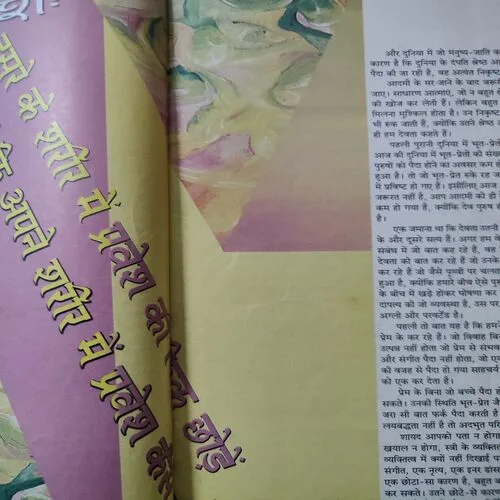 के शरीर में प्रवेश की फिक्र छोड़ें
अपने शरीर में प्रवेश
और दुनिया में जो मनुष्य-जाति
कारण है कि दुनिया के दंपति श्रेष्ठ
पैदा की जा रही है, वह अत्यंत निकृष्ट
आदमी के मर जाने के बाद जरूरी
जाए। साधारण आत्माएं, जो न बहुत
की खोज कर लेती हैं। लेकिन बहुत
मिलना मुश्किल होता है। उन निकृष्ट
भी रुक जाती हैं, क्योंकि उतने श्रेष्ठ
ही हम देवता कहते हैं।
पहली पुरानी दुनिया में भूत-प्रेतों
आज की दुनिया में भूत-प्रेतों की संख्या
पुरुषों को पैदा होने का अवसर कम हो
हुआ है। तो जो भूत-प्रेत रुके रह
में प्रविष्ट हो गए हैं। इसीलिए आज
जरूरत नहीं है, आप आदमी को ही
कम हो गया है, क्योंकि देव पुरुष ही
है।
एक जमाना था कि देवता उतनी
के और दूसरे सत्य हैं। अगर हम
संबंध में जो बात कह रहे हैं, वह
देवता की बात कर रहे हैं जो उनके
कर रहे हैं जो जैसे पृथ्वी पर चलता
हुआ है, क्योंकि हमारे बीच ऐसे
के बीच में खड़े होकर घोषणा कर
दांपत्य की जो व्यवस्था है, उस पर
अग्ली और परवर्टेड है।
पहली तो बात यह है कि हमने
प्रेम के कर रहे हैं। जो विवाह बिना
उत्पन्न नहीं होता जो प्रेम से संभव
और संगीत पैदा नहीं होता, जो एक
की वजह से पैदा हो गया साहचर्य
को एक कर देता है।
प्रेम के बिना जो बच्चे पैदा
सकते। उनकी स्थिति भूत-प्रेत
जरा सी बात फर्क पैदा करती है
लयबद्धता नहीं है तो अदभुत
शायद आपको पता न होगा
खयाल न होगा, स्त्री के व्यक्तित्व
व्यक्तित्व में क्यों नहीं दिखाई
संगीत, एक नृत्य, एक इनर डांस
एक छोटा-सा कारण है, बहुत
कर सकते। उतने छोटे-से कारण